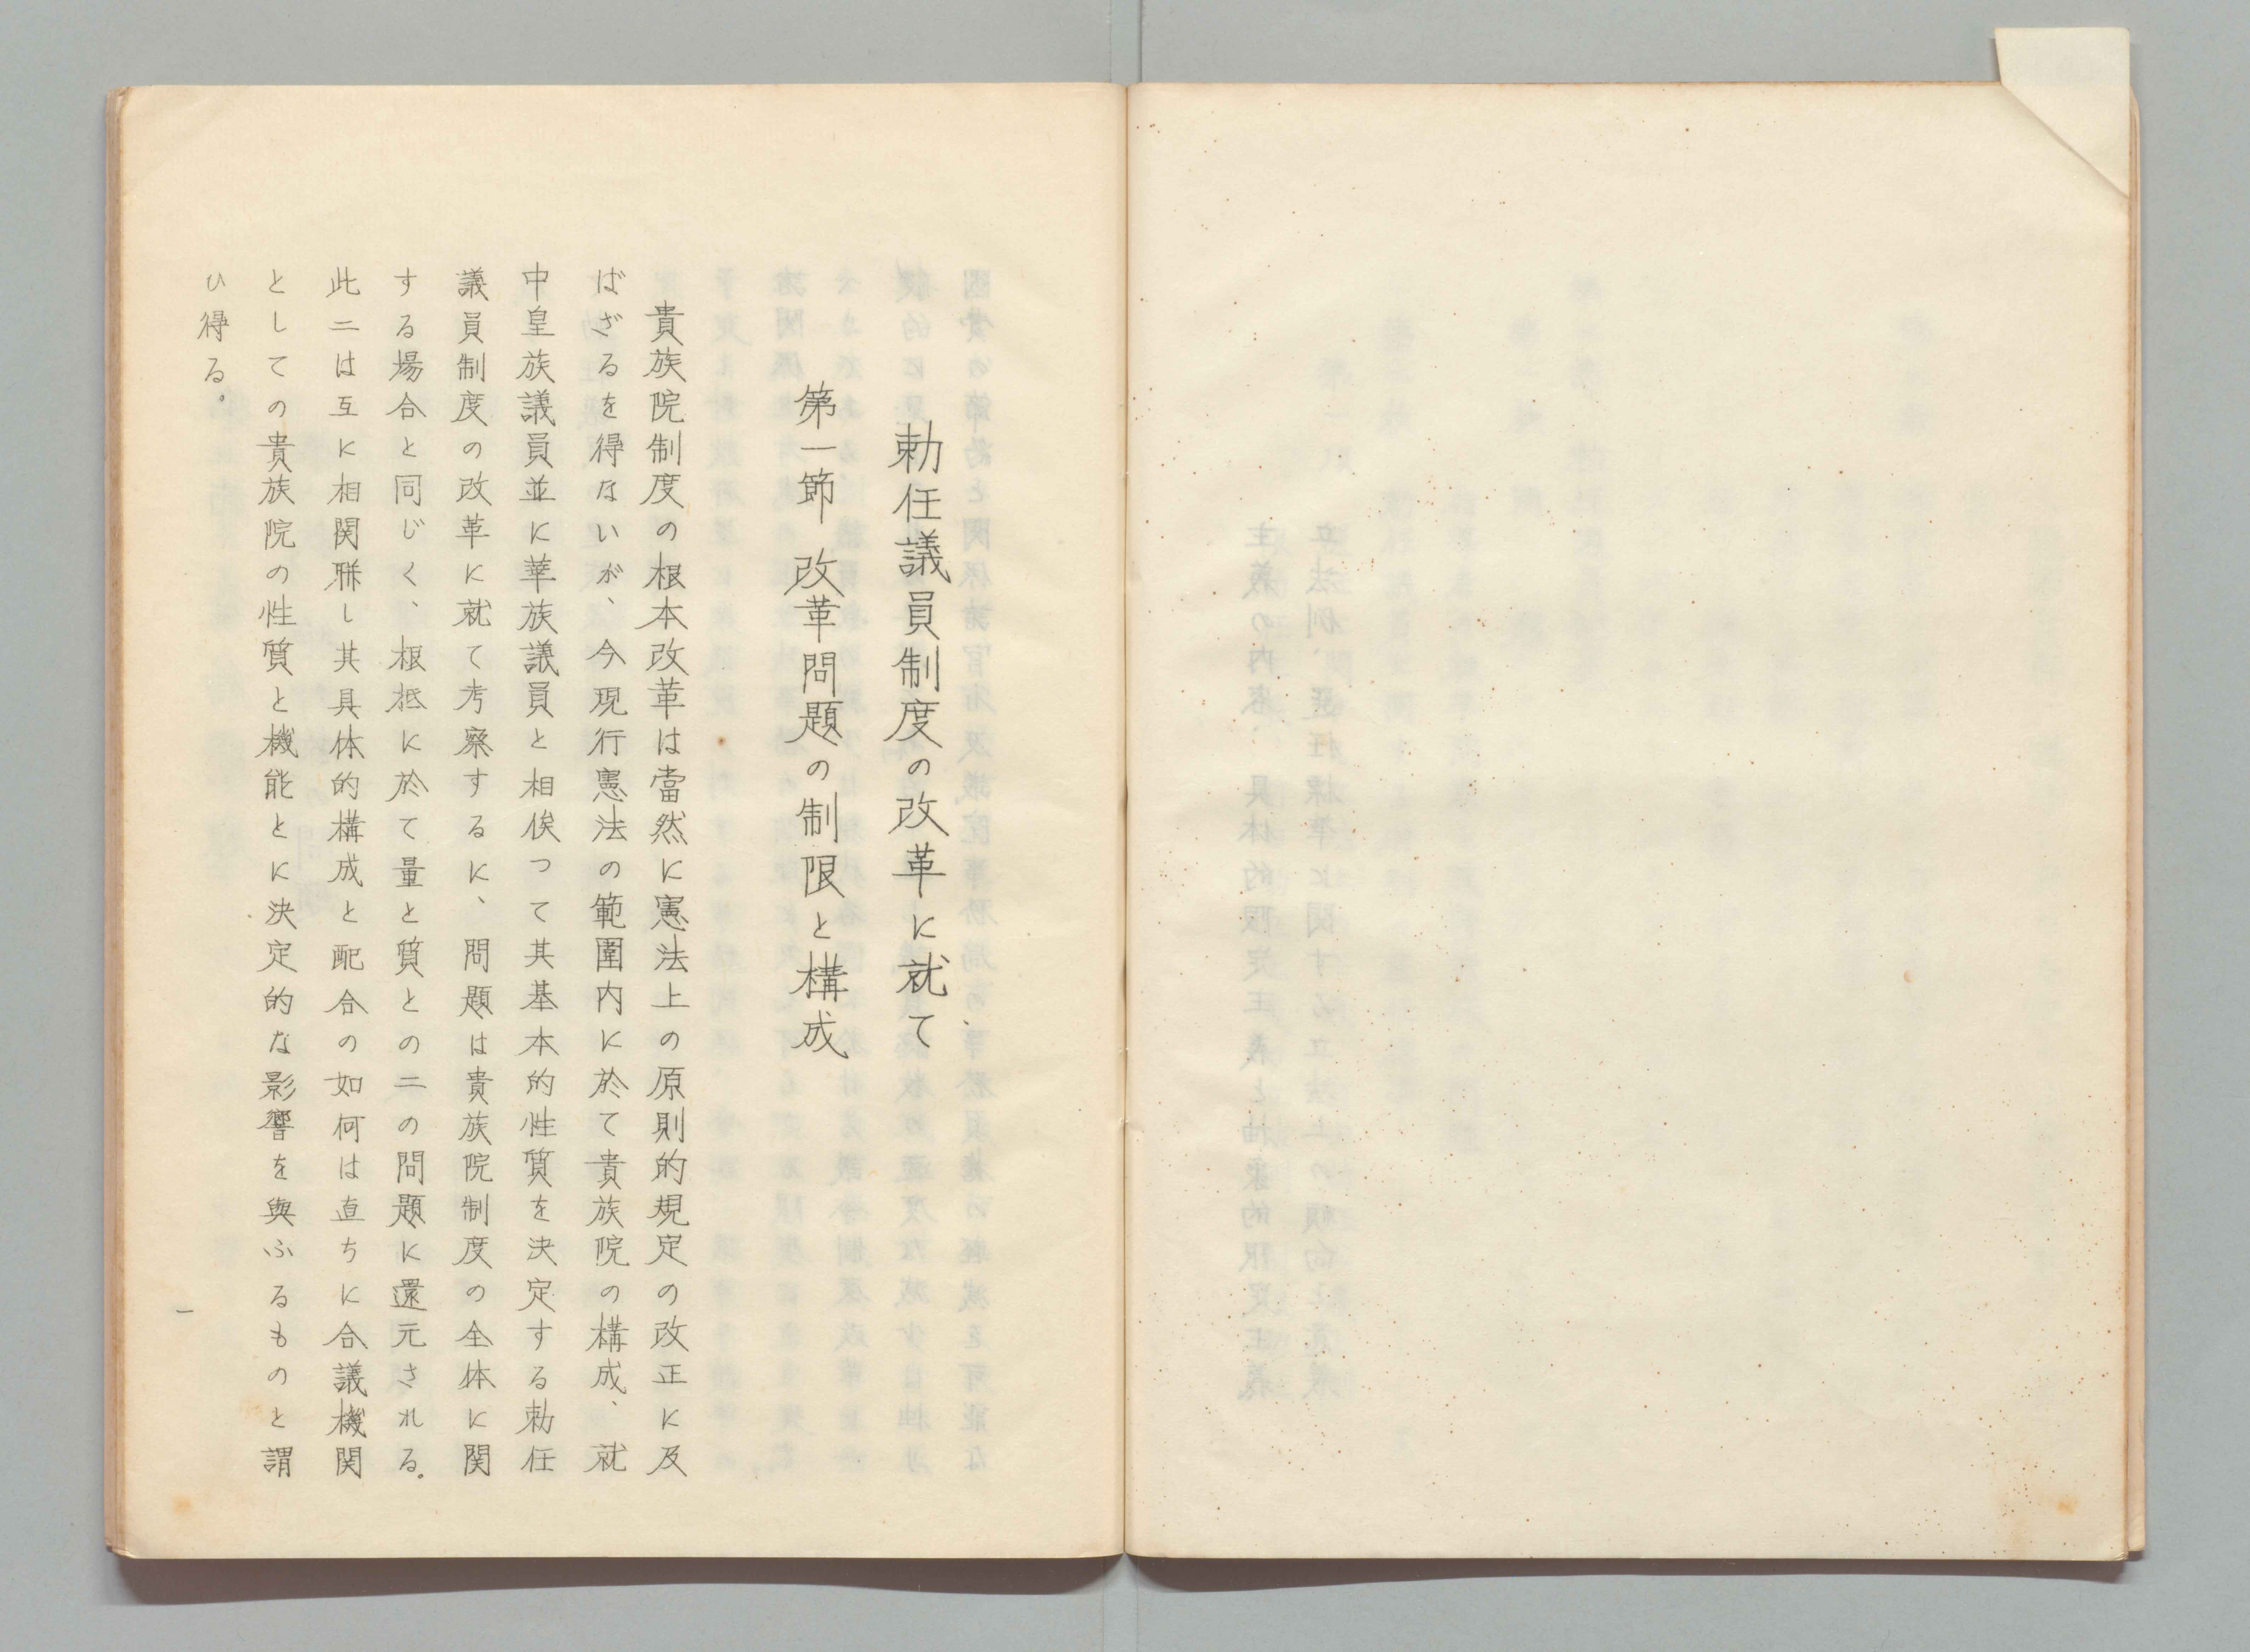 勅任議員制度の改革に就て
第一節 改革問題の制限と構成
貴族院制度の根本改革は當然に憲法上の原則的規定の改正に及
ばざるを得ないが、今現行憲法の範圍内に於て貴族院の構成、就
中皇族議員並に華族議員と相俟つて其基本的性質を決定する勅任
議員制度の改革に就て考察するに、問題は貴族院制度の全体に関
する場合と同じく、根抵に於て量と質との二の問題に還元される。
此二は互に相関聯し其具体的構成と配合の如何は直ちに合議機関
としての貴族院の性質と機能とに決定的な影響を與ふるものと謂
ひ得る。
一